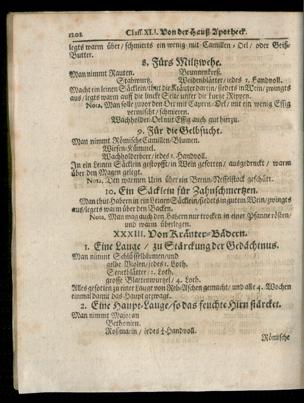 1202 Class. XLI. Von der Hauß Apotheck.
legts warm über/ schmierts ein wenig mit Camillen-Oel/ oder Geiß-
Butter.
8. Fürs Miltzwehe.
Man nimmt Rauten. Brunnenkreß.
Stabwurtz. Weidenblätter/ jedes 1. Handvoll.
Macht ein leinen Säcklein/ thut die Kräuter darein/ siedets in Wein/ zwingts
aus/ legts warm auff die lincke Seite unter die kurtze Rippen.
Nota, Man solle zuvor den Ort mit Cappern-Oel/ mit ein wenig Essig
vermischt/ schmieren.
Wachholder-Oel mit Essig auch gut hierzu.
9. Für die Gelbsucht.
Man nimmt Römische Camillen-Blumen.
Wiesen-Kümmel.
Wachholderbeer/ jedes 1. Handvoll.
In ein leinen Säcklein gestopfft/ in Wein gesotten/ ausgedruckt/ warm
über den Magen gelegt.
Nota, Den warmen Urin über ein Brenn-Nesselstock geschütt.
10. Ein Säcklein für Zahnschmertzen.
Man thut Habern in ein Leinen Säcklein/ siedets in guten Wein/ zwingts
aus/ legets warm über den Backen.
Nota, Man mag auch den Habern nur trocken in einer Pfanne rösten/
und warm überlegen.
XXXIII. Von Kräuter-Bädern.
1. Eine Lauge/ zu Stärckung der Gedächtnus.
Man nimmt Schlüsselblumen/ und
gelbe Violen/ jedes 1. Loth.
Senetblätter/ 2. Loth.
grosse Klattenwurtzel/ 4. Loth.
Alles gesotten zu einer Laugen von Reb-Aschen gemacht/ und alle 4. Wochen
einmal damit das Haupt gezwagt.
2. Eine Haupt-Lauge/ so das feuchte Hirn stärcket.
Man nimmt Majoran
Bethonien.
Rosmarin/ jedes ½. Handvoll.
Römische